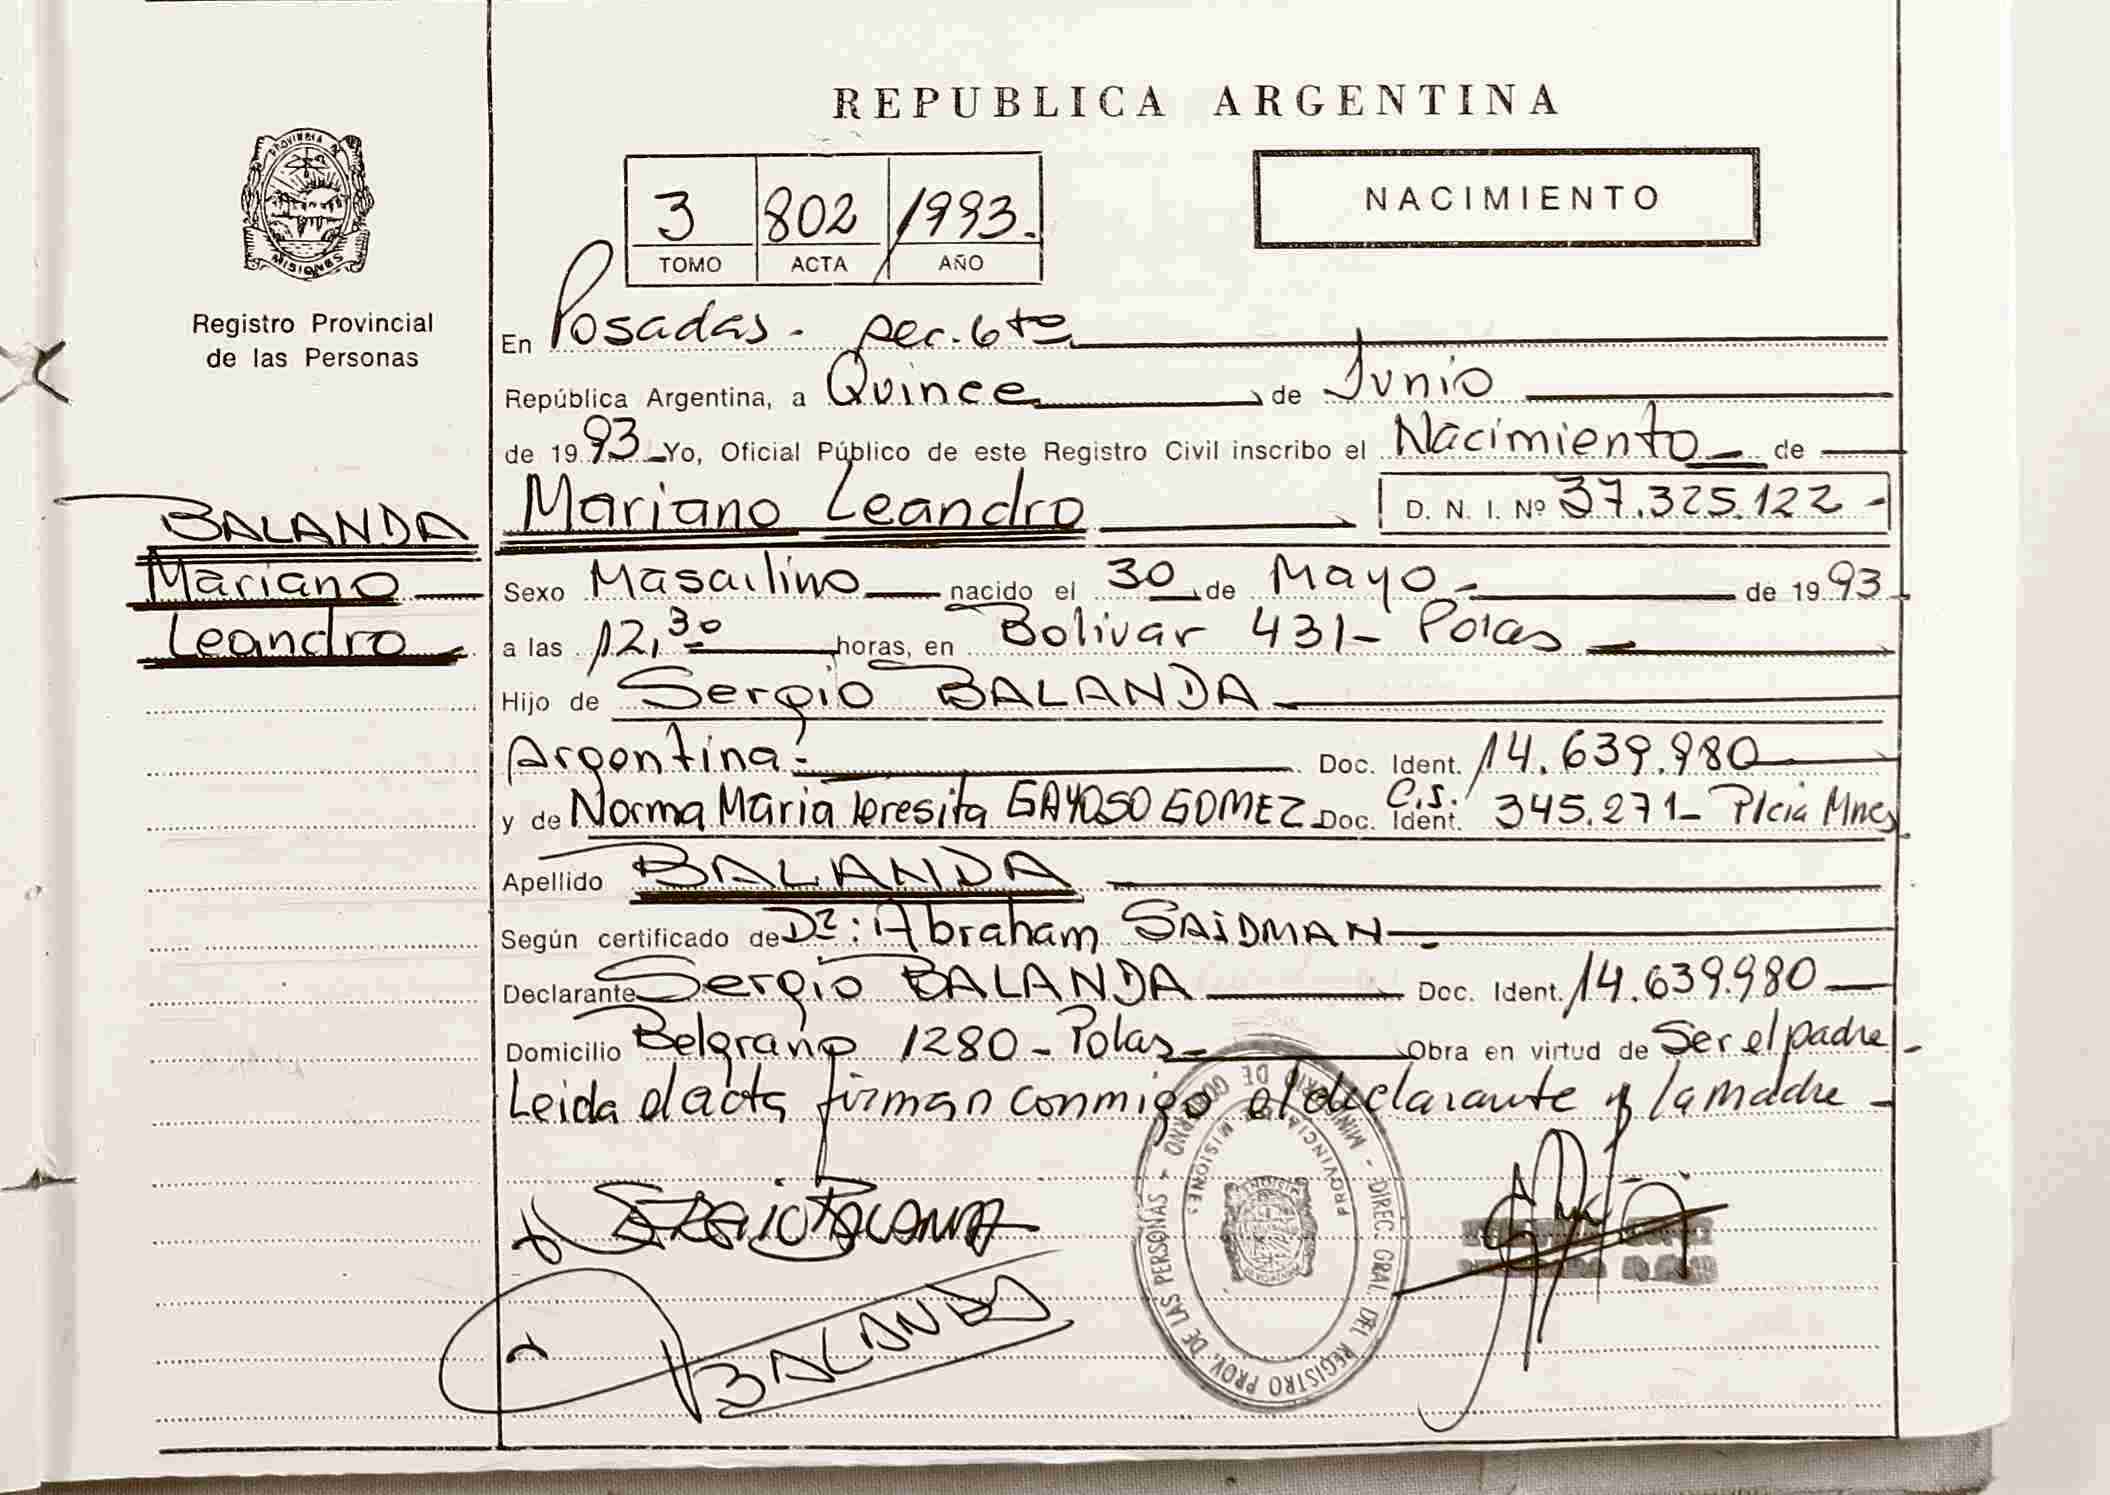 REPUBLICA ARGENTINA
PROVINCIA DE
MISIONES
Registro Provincial
de las Personas
3 802 1993.
TOMO ACTA AÑO
NACIMIENTO
En Posadas - sec. 6ta
República Argentina, a Quince de Junio
de 1993 Yo, Oficial Público de este Registro Civil inscribo el Nacimiento de
BALANDA
Mariano
Leandro
Mariano Leandro D. N. I. Nº 37.325.122 -
Sexo Masculino nacido el 30 de Mayo - de 1993
a las 12,30 horas, en Bolivar 431 - Pdas
Hijo de Sergio BALANDA
Argentina - Doc. Ident. 14.639.980
y de Norma Maria Teresita GAYOSO GOMEZ Doc. Ident. C.I. 345.271 - Plcia Mnes
Apellido BALANDA
Según certificado de Dr: Abraham SAIDMAN
Declarante Sergio BALANDA Doc. Ident. 14.639.980
Domicilio Belgrano 1280 - Pdas - Obra en virtud de Ser el padre
Leida el acta firman conmigo el declarante y la madre
Sergio Balanda
BALANDA
MINISTERIO DE GOBIERNO - DIREC. GRAL. DEL REGISTRO PROV. DE LAS PERSONAS -
PROVINCIA DE MISIONES